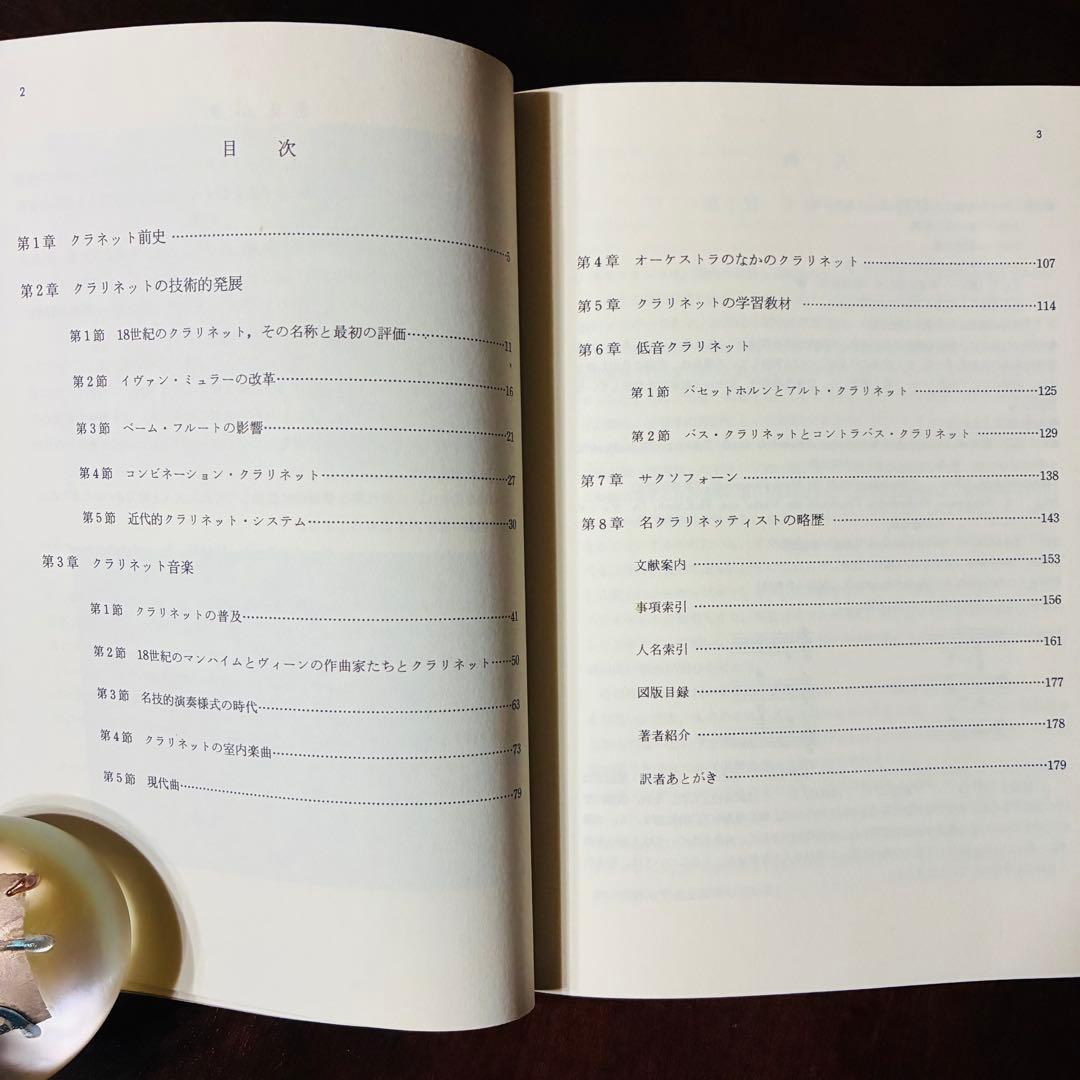 2
目 次
第1章 クラネット前史 5
第2章 クラリネットの技術的発展
第1節 18世紀のクラリネット，その名称と最初の評価 11
第2節 イヴァン・ミュラーの改革 16
第3節 ベーム・フルートの影響 21
第4節 コンビネーション・クラリネット 27
第5節 近代的クラリネット・システム 30
第3章 クラリネット音楽
第1節 クラリネットの普及 41
第2節 18世紀のマンハイムとヴィーンの作曲家たちとクラリネット 50
第3節 名技的演奏様式の時代 63
第4節 クラリネットの室内楽曲 73
第5節 現代曲 79
3
第4章 オーケストラのなかのクラリネット 107
第5章 クラリネットの学習教材 114
第6章 低音クラリネット
第1節 バセットホルンとアルト・クラリネット 125
第2節 バス・クラリネットとコントラバス・クラリネット 129
第7章 サクソフォーン 138
第8章 名クラリネッティストの略歴 143
文献案内 153
事項索引 156
人名索引 161
図版目録 177
著者紹介 178
訳者あとがき 179